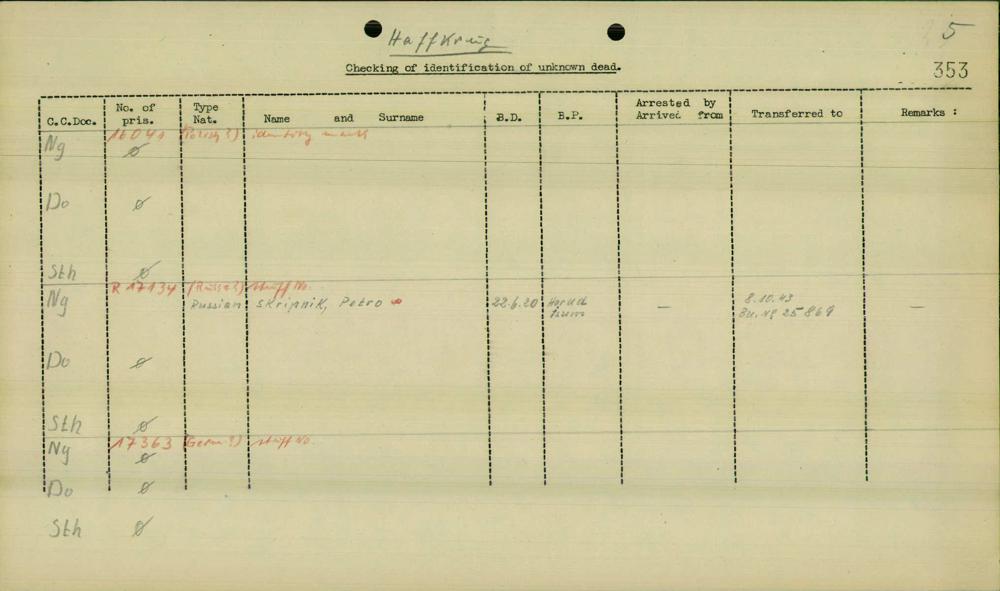 5
Haffkrug
Checking of identification of unknown dead.
353
C.C.Doc. No. of pris. Type Nat. Name and Surname B.D. B.P. Arrested by Arrived from Transferred to Remarks :
16041 (Polish?) identity mark
Ng ø
Do ø
Sth ø
R 17134 (Russe?) stuff No.
Ng Russian Skripnik, Petro 22.6.20 — 8.10.43 —
Bu. Nr 25869
Do ø
Sth ø
17363 (Germ?) stuff No.
Ng ø
Do ø
Sth ø